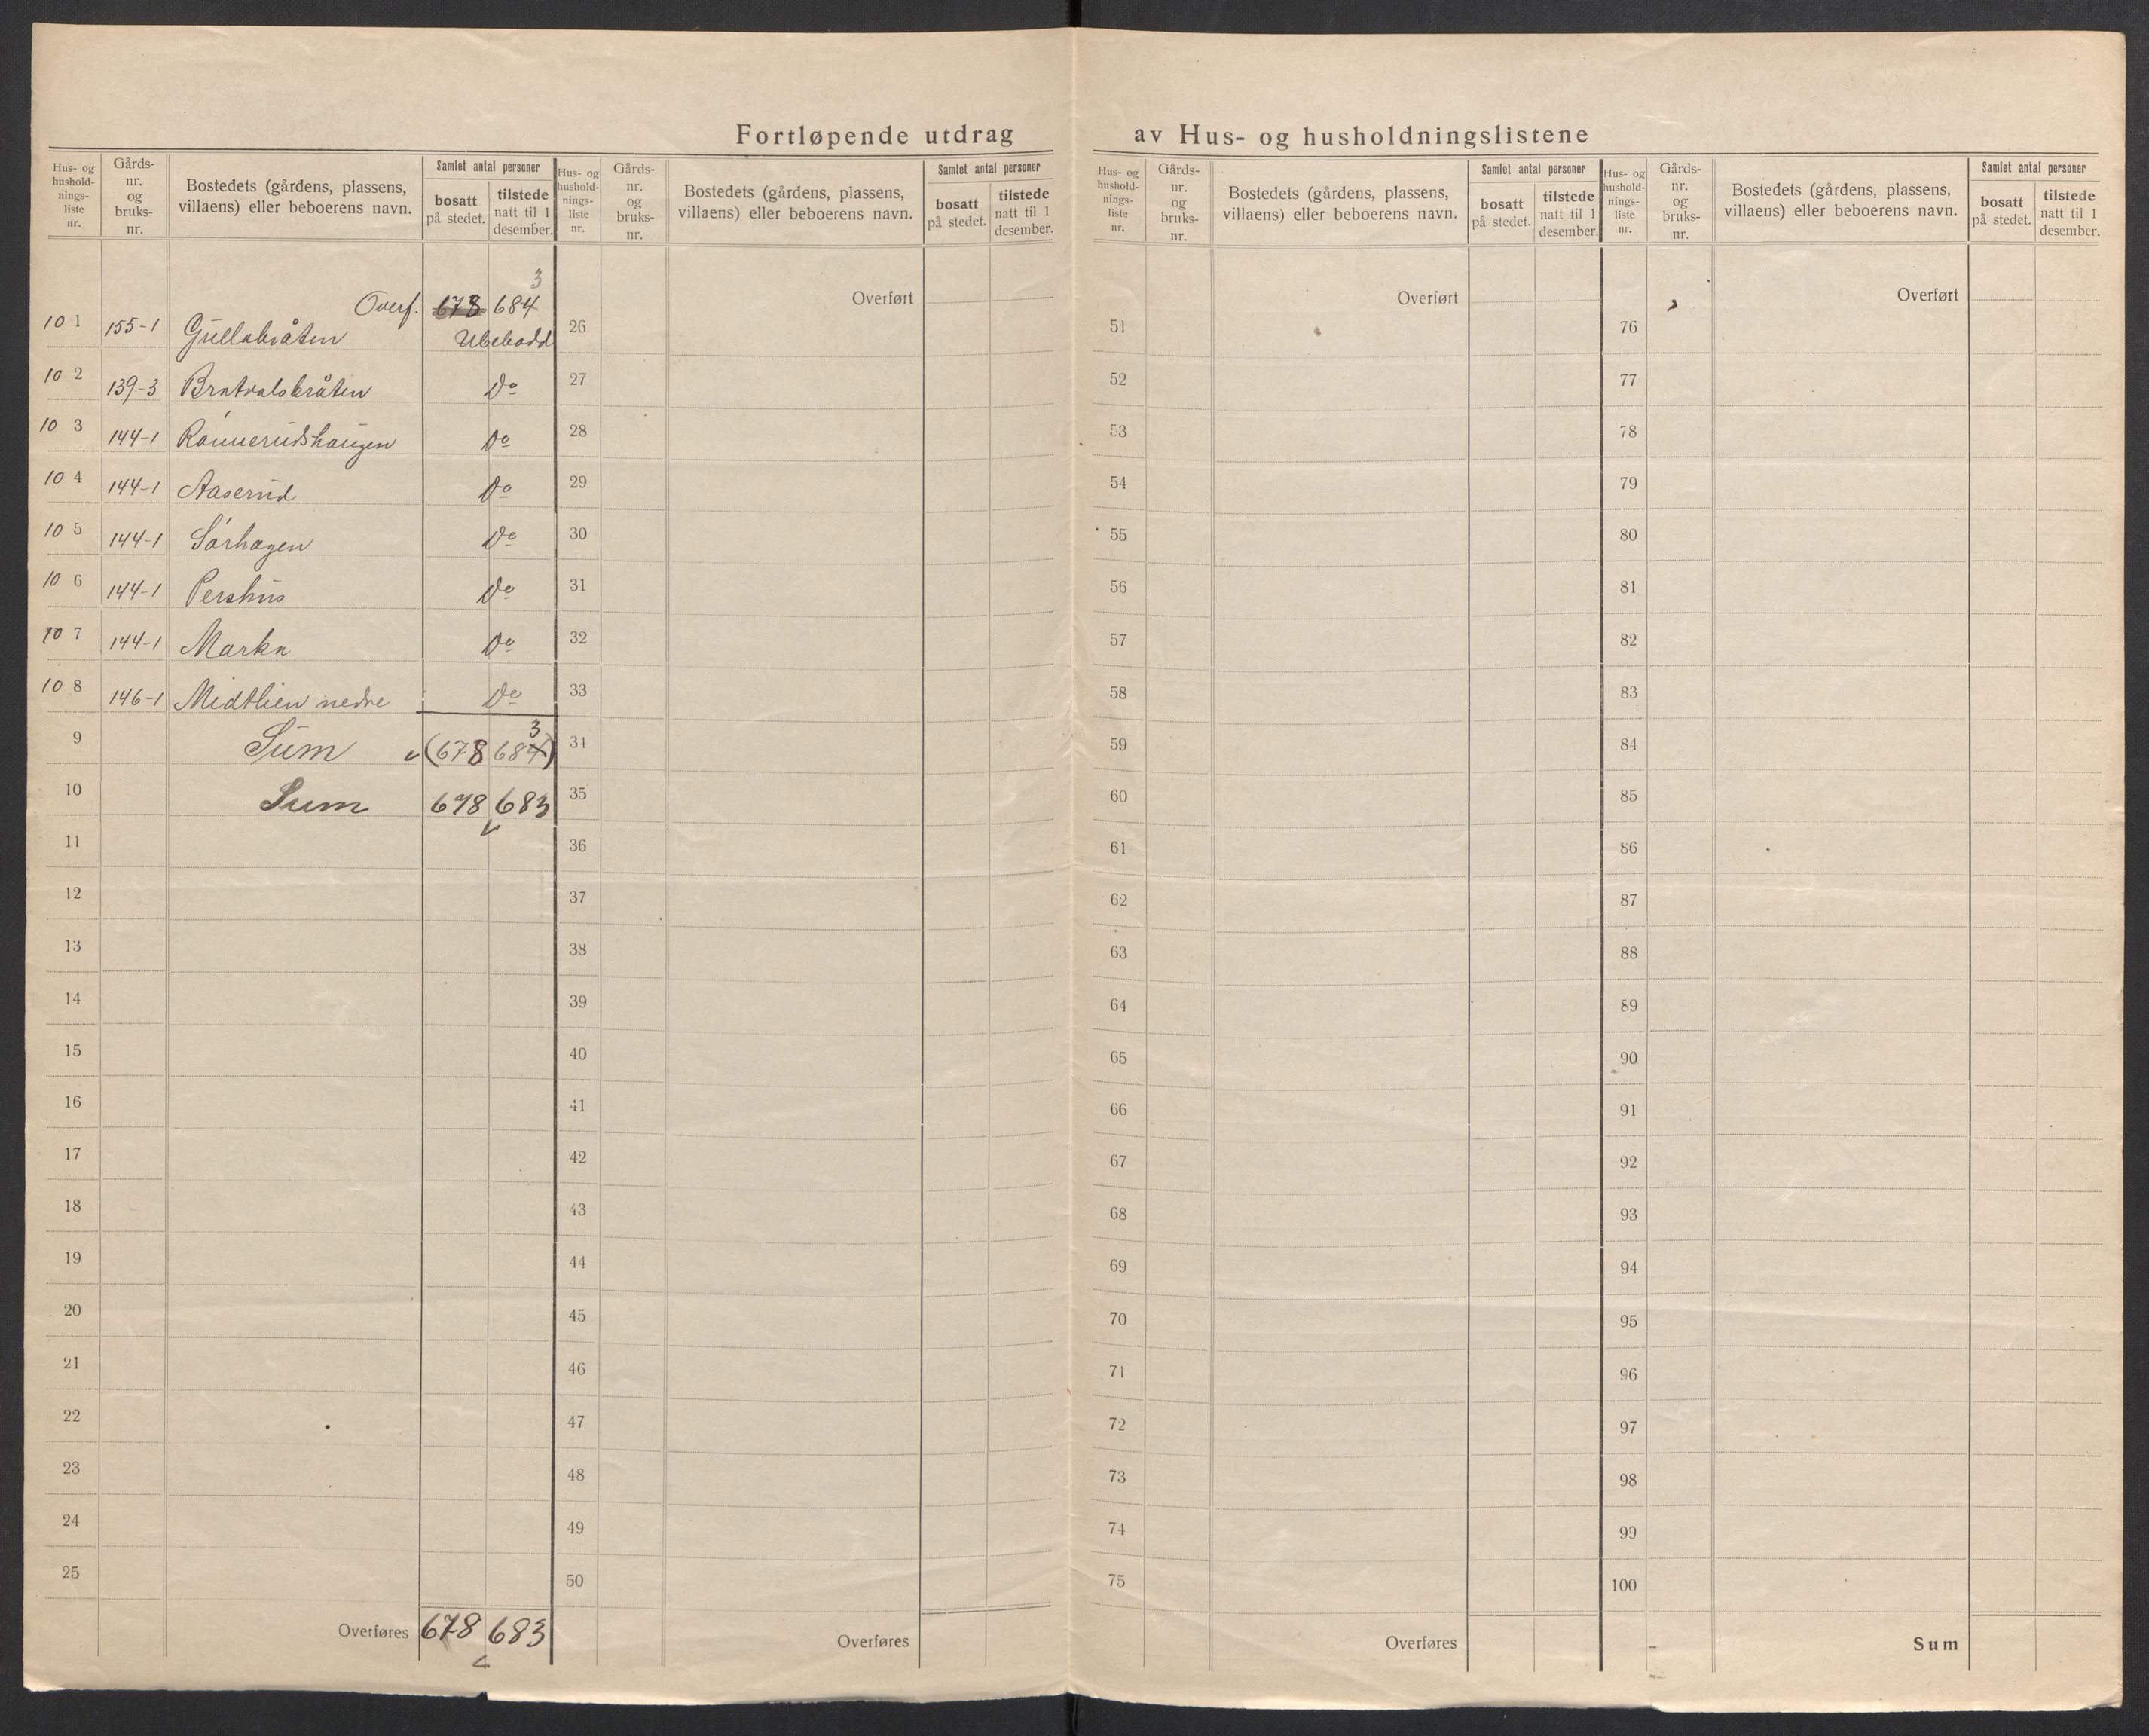 Fortløpende utdrag av Hus- og husholdningslistene
Hus- og hushold-nings-liste nr. Gårds-nr. og bruks-nr. Bostedets (gårdens, plassens, villaens) eller beboerens navn. Samlet antal personer bosatt på stedet. tilstede natt til 1 desember.
3
Overf. 678 684
10 1 155-1 Gullabråten Ubebodd
10 2 139-3 Bratvalsbråten Do
10 3 144-1 Rønnerudshaugen Do
10 4 144-1 Aaserud Do
10 5 144-1 Sørhagen Do
10 6 144-1 Pershus Do
10 7 144-1 Marka Do
10 8 146-1 Midtlien nedre Do
3
9 Sum (678 684)
10 Sum 678 683
11
12
13
14
15
16
17
18
19
20
21
22
23
24
25
Overføres 678 683
Hus- og hushold-nings-liste nr. Gårds-nr. og bruks-nr. Bostedets (gårdens, plassens, villaens) eller beboerens navn. Samlet antal personer bosatt på stedet. tilstede natt til 1 desember.
Overført
26
27
28
29
30
31
32
33
34
35
36
37
38
39
40
41
42
43
44
45
46
47
48
49
50
Overføres
Hus- og hushold-nings-liste nr. Gårds-nr. og bruks-nr. Bostedets (gårdens, plassens, villaens) eller beboerens navn. Samlet antal personer bosatt på stedet. tilstede natt til 1 desember.
Overført
51
52
53
54
55
56
57
58
59
60
61
62
63
64
65
66
67
68
69
70
71
72
73
74
75
Overføres
Hus- og hushold-nings-liste nr. Gårds-nr. og bruks-nr. Bostedets (gårdens, plassens, villaens) eller beboerens navn. Samlet antal personer bosatt på stedet. tilstede natt til 1 desember.
Overført
76
77
78
79
80
81
82
83
84
85
86
87
88
89
90
91
92
93
94
95
96
97
98
99
100
Sum